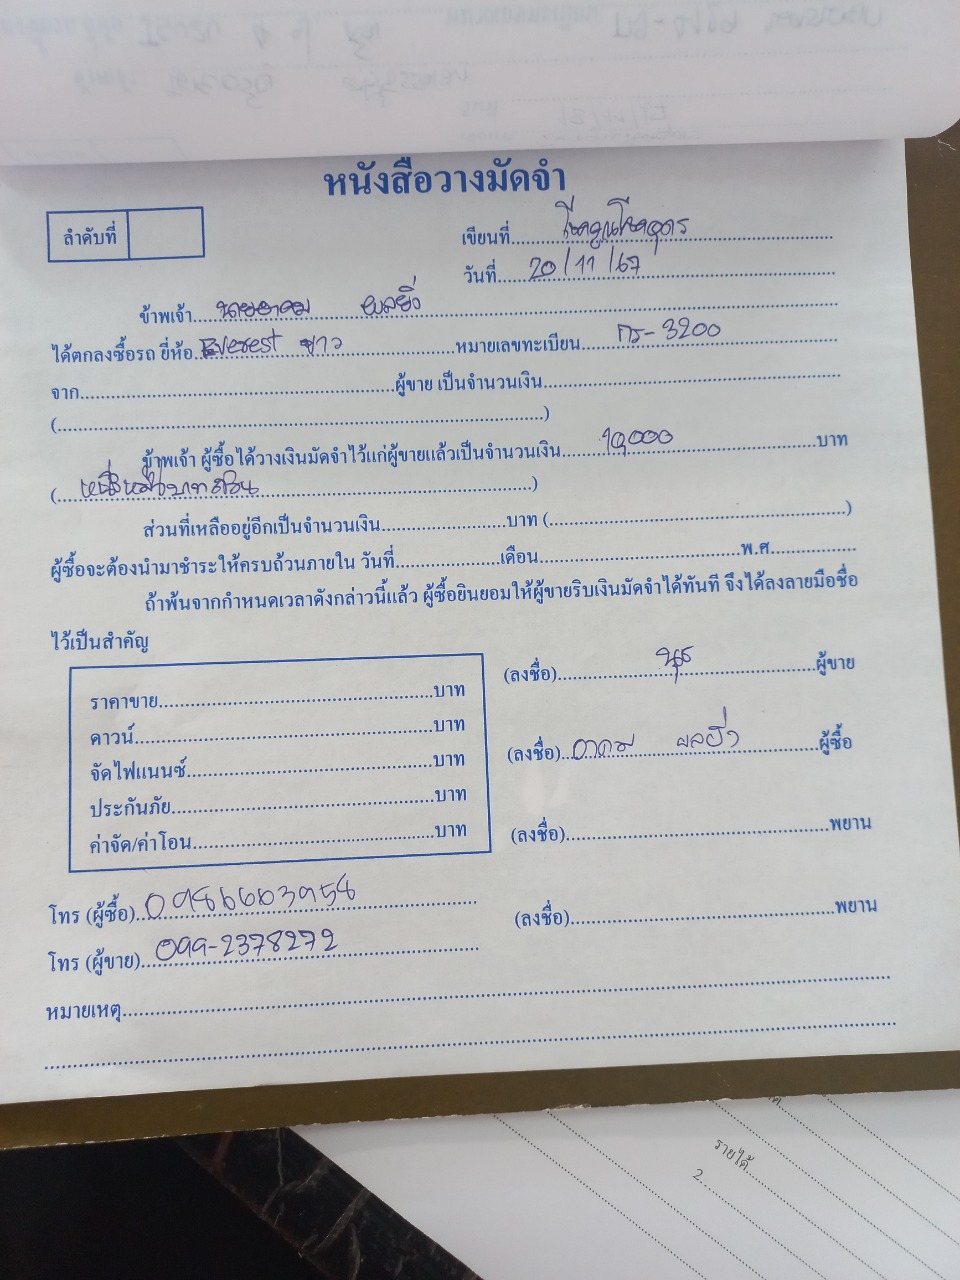 หนังสือวางมัดจำ
ลำดับที่
เขียนที่
วันที่ 20/11/67
ข้าพเจ้า นายอาคม ผลยิ่ง
ได้ตกลงซื้อรถ ยี่ห้อ Everest ขาว หมายเลขทะเบียน กร-3200
จาก ผู้ขาย เป็นจำนวนเงิน
( )
ข้าพเจ้า ผู้ซื้อได้วางเงินมัดจำไว้แก่ผู้ขายแล้วเป็นจำนวนเงิน 10,000 บาท
(หนึ่งหมื่นบาทถ้วน)
ส่วนที่เหลืออยู่อีกเป็นจำนวนเงิน บาท ( )
ผู้ซื้อจะต้องนำมาชำระให้ครบถ้วนภายใน วันที่ เดือน พ.ศ.
ถ้าพ้นจากกำหนดเวลาดังกล่าวนี้แล้ว ผู้ซื้อยินยอมให้ผู้ขายริบเงินมัดจำได้ทันที จึงได้ลงลายมือชื่อ
ไว้เป็นสำคัญ
ราคาขาย บาท
ดาวน์ บาท
จัดไฟแนนซ์ บาท
ประกันภัย บาท
ค่าจัด/ค่าโอน บาท
(ลงชื่อ) นุช ผู้ขาย
(ลงชื่อ) อาคม ผลยิ่ง ผู้ซื้อ
(ลงชื่อ) พยาน
(ลงชื่อ) พยาน
โทร (ผู้ซื้อ) 0986663958
โทร (ผู้ขาย) 099-2378272
หมายเหตุ
รายได้
2.